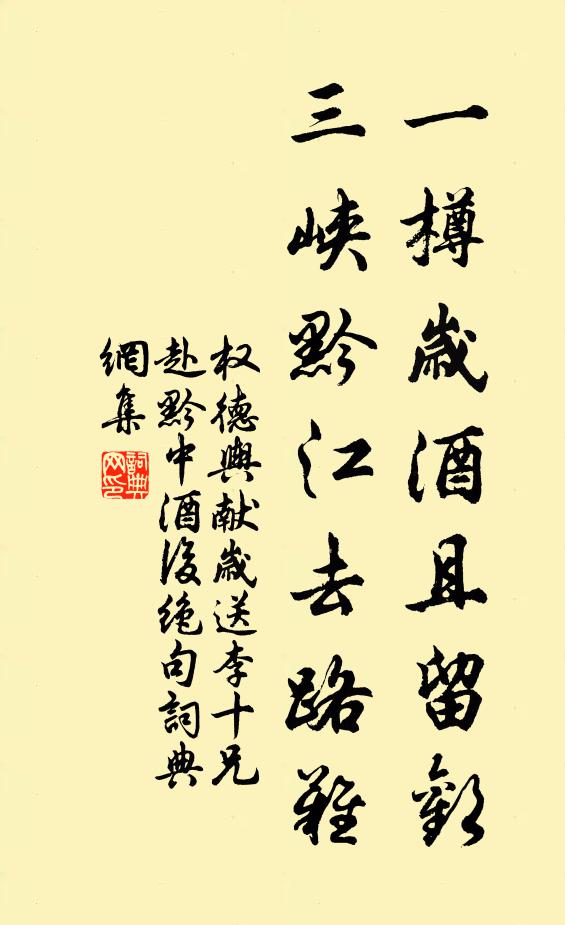 一樽歲酒且留歡
三峽黔江去路難
权德輿献歲送李十兄
赴黔中酒後絶句詞典
網集
詞典
网印